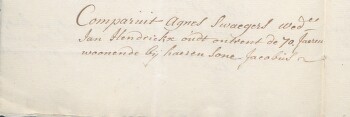 Comparuit Agnes Swaegers wed:e
Jan Hendrickx oudt ontrent de 70 Jaeren
woonende by haeren sone Jacobus